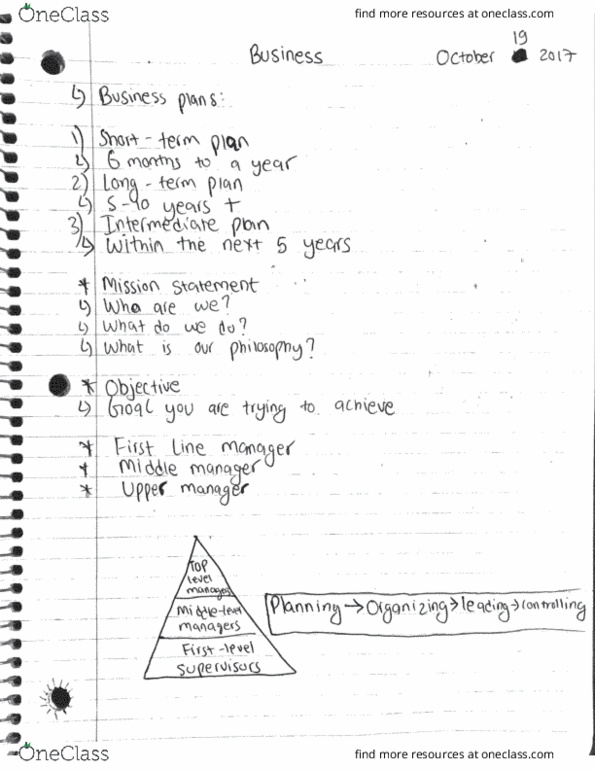 OneClass
find more resources at oneclass.com
Business
October 19 2017
↳ Business plans:
1) Short-term plan
↳ 6 months to a year
2) Long-term plan
↳ 5-10 years +
3) Intermediate plan
↳ Within the next 5 years
* Mission statement
↳ Who are we?
↳ What do we do?
↳ What is our philosophy?
* Objective
↳ Goal you are trying to achieve
* First Line manager
* Middle manager
* Upper manager
Top
level
managers
Middle-level
managers
First-level
supervisors
Planning → Organizing → leading → controlling
OneClass
find more resources at oneclass.com